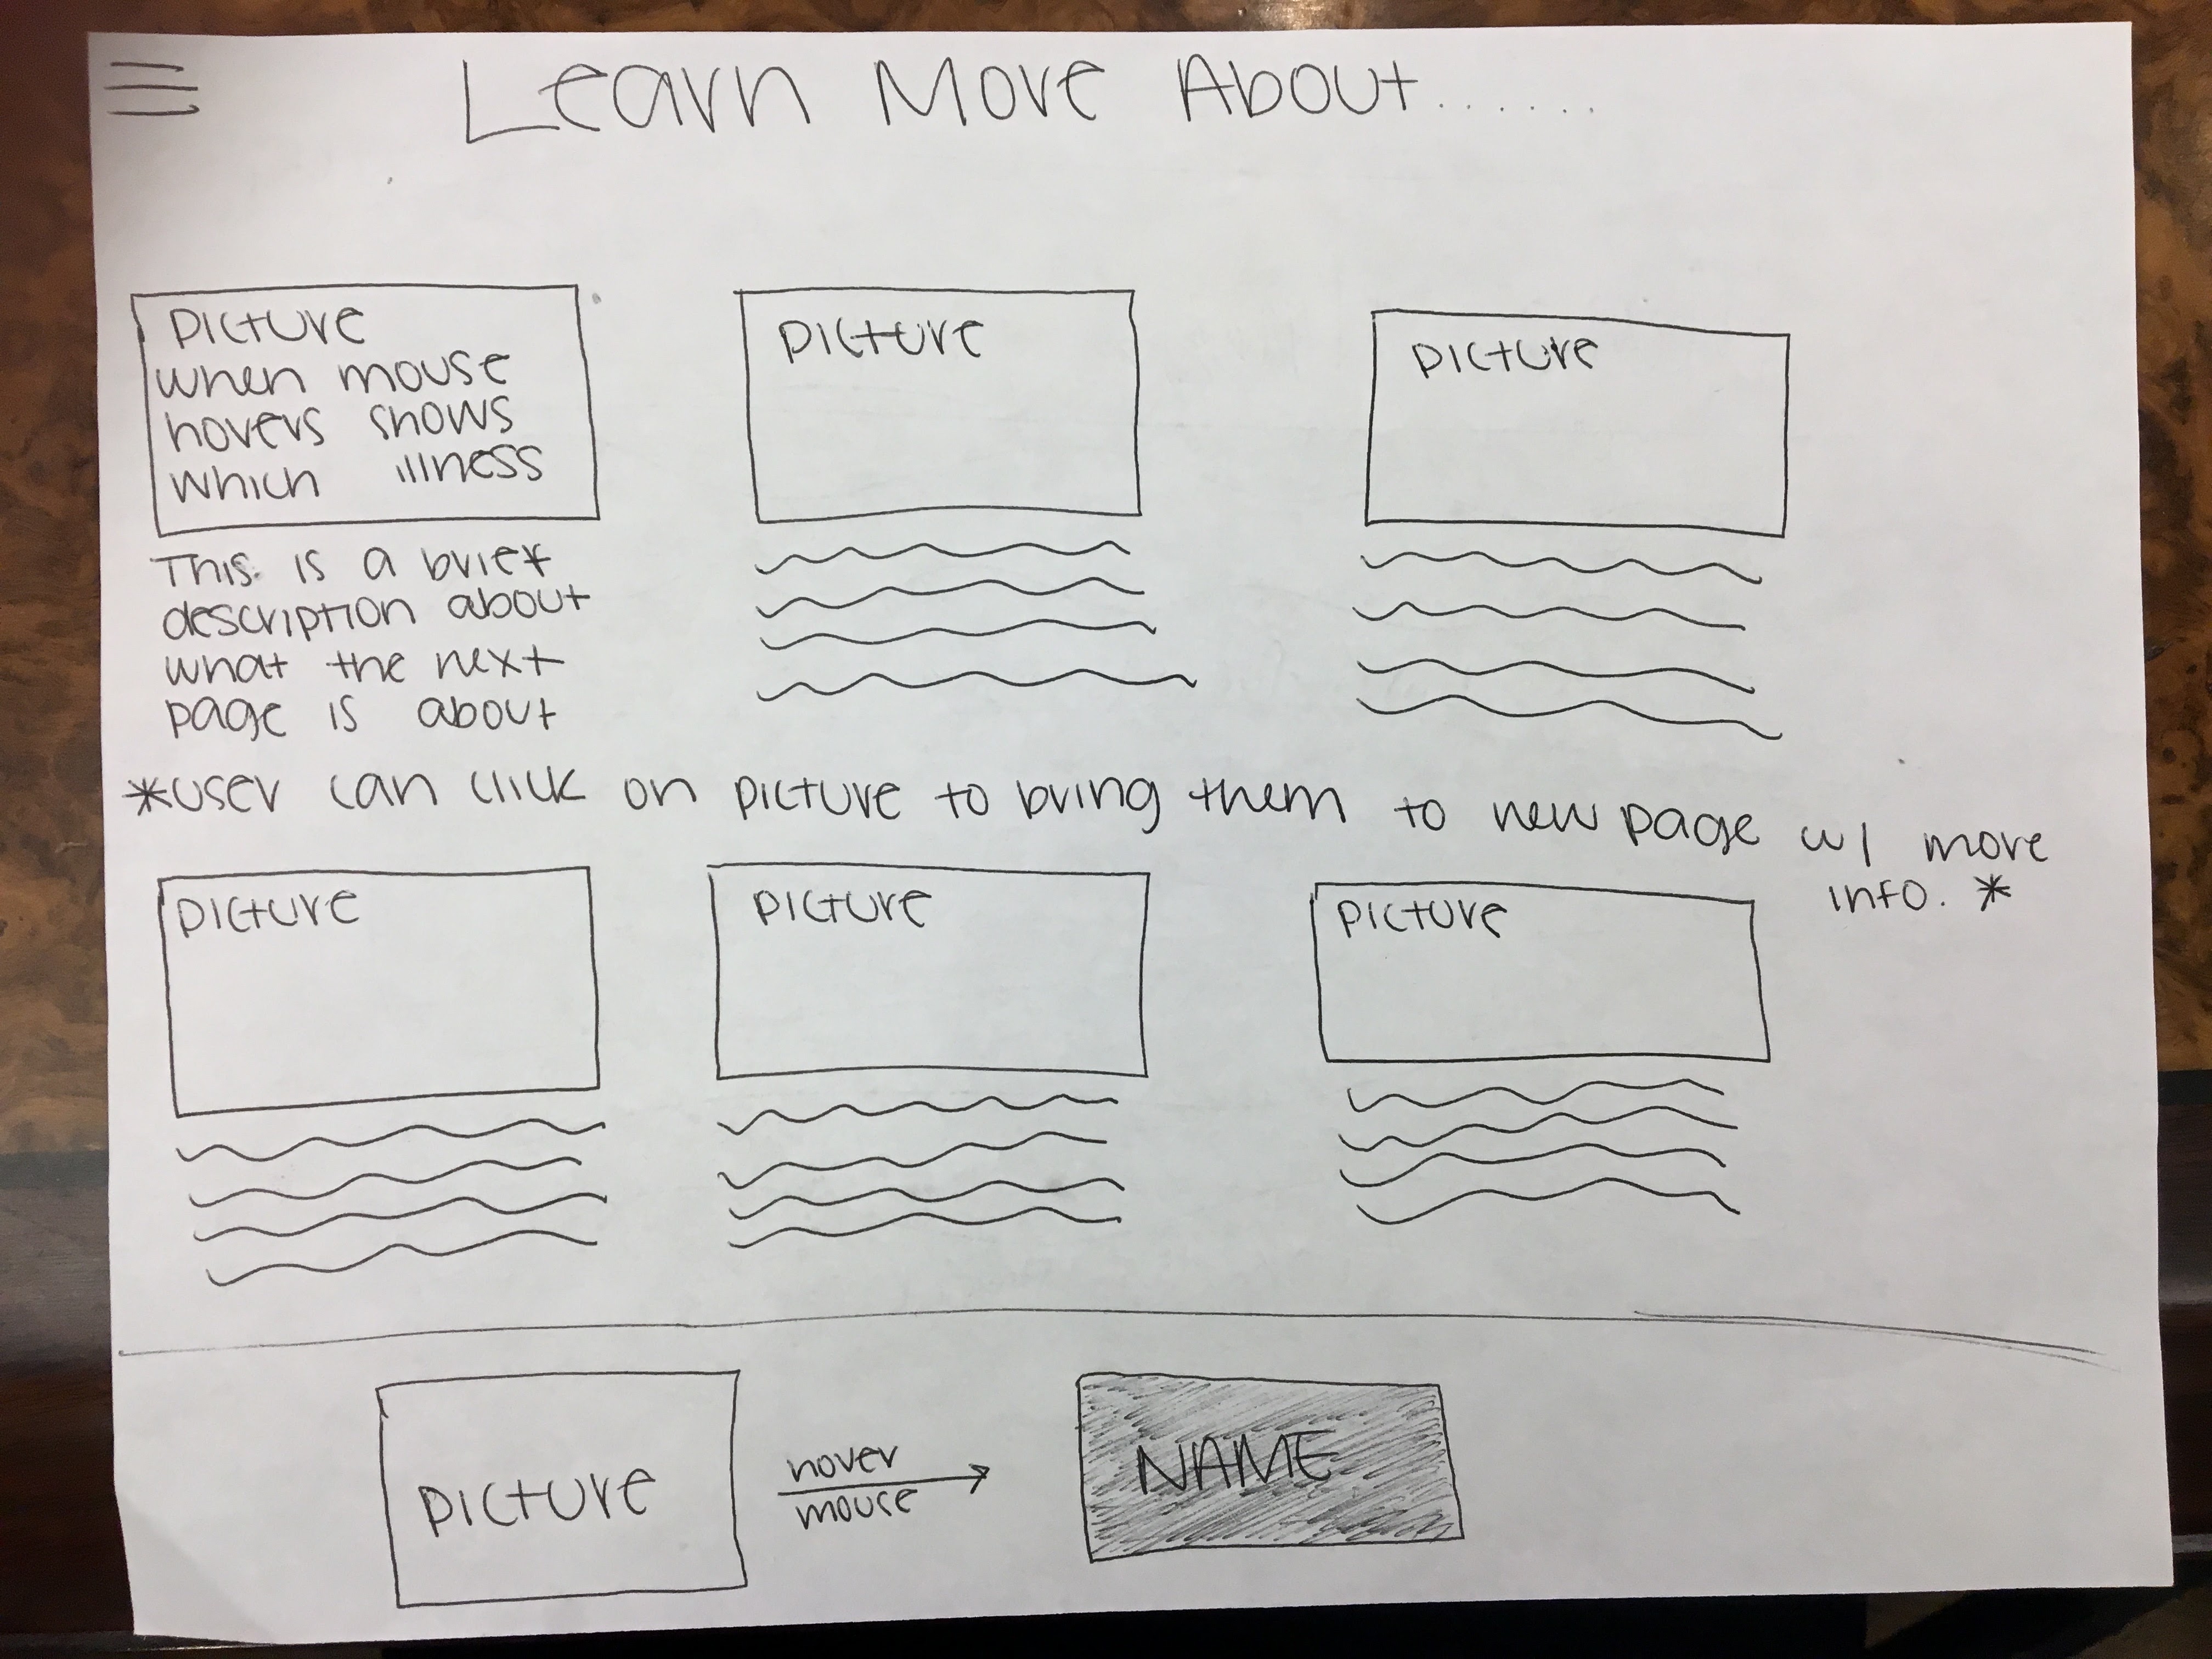 Learn More About.......
Picture
when mouse
hovers shows
which illness
Picture
Picture
This is a brief
description about
what the next
page is about
*user can click on picture to bring them to new page w/ more
info. *
Picture
Picture
Picture
Picture
hover
mouse
NAME